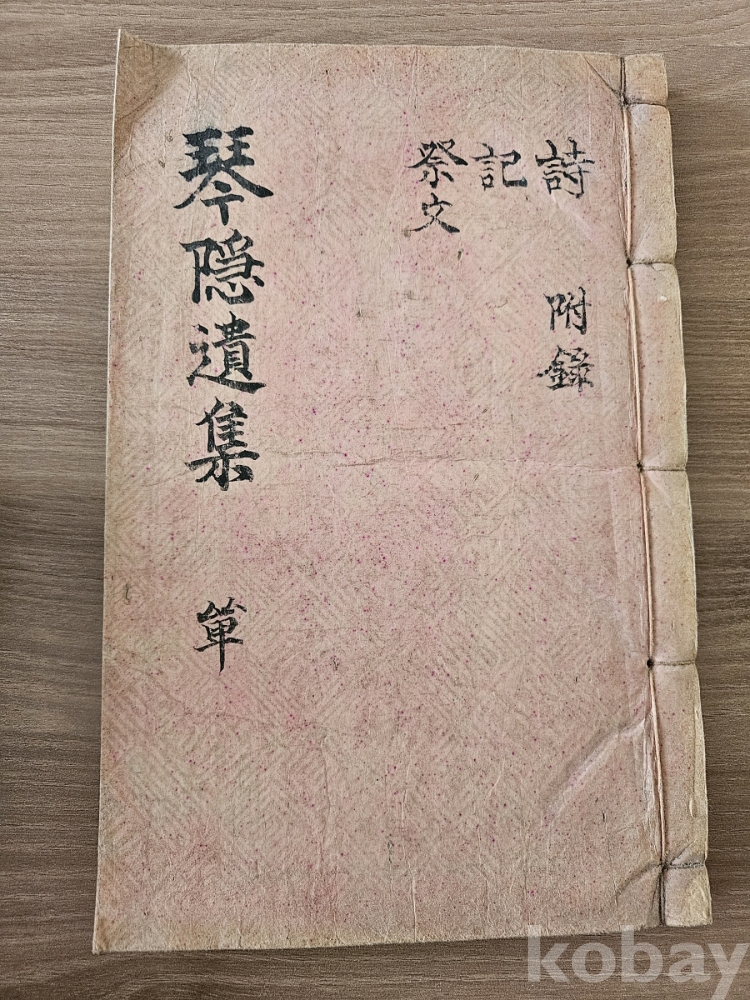 詩 附錄
記
祭文
琴隱遺集 單
kobay